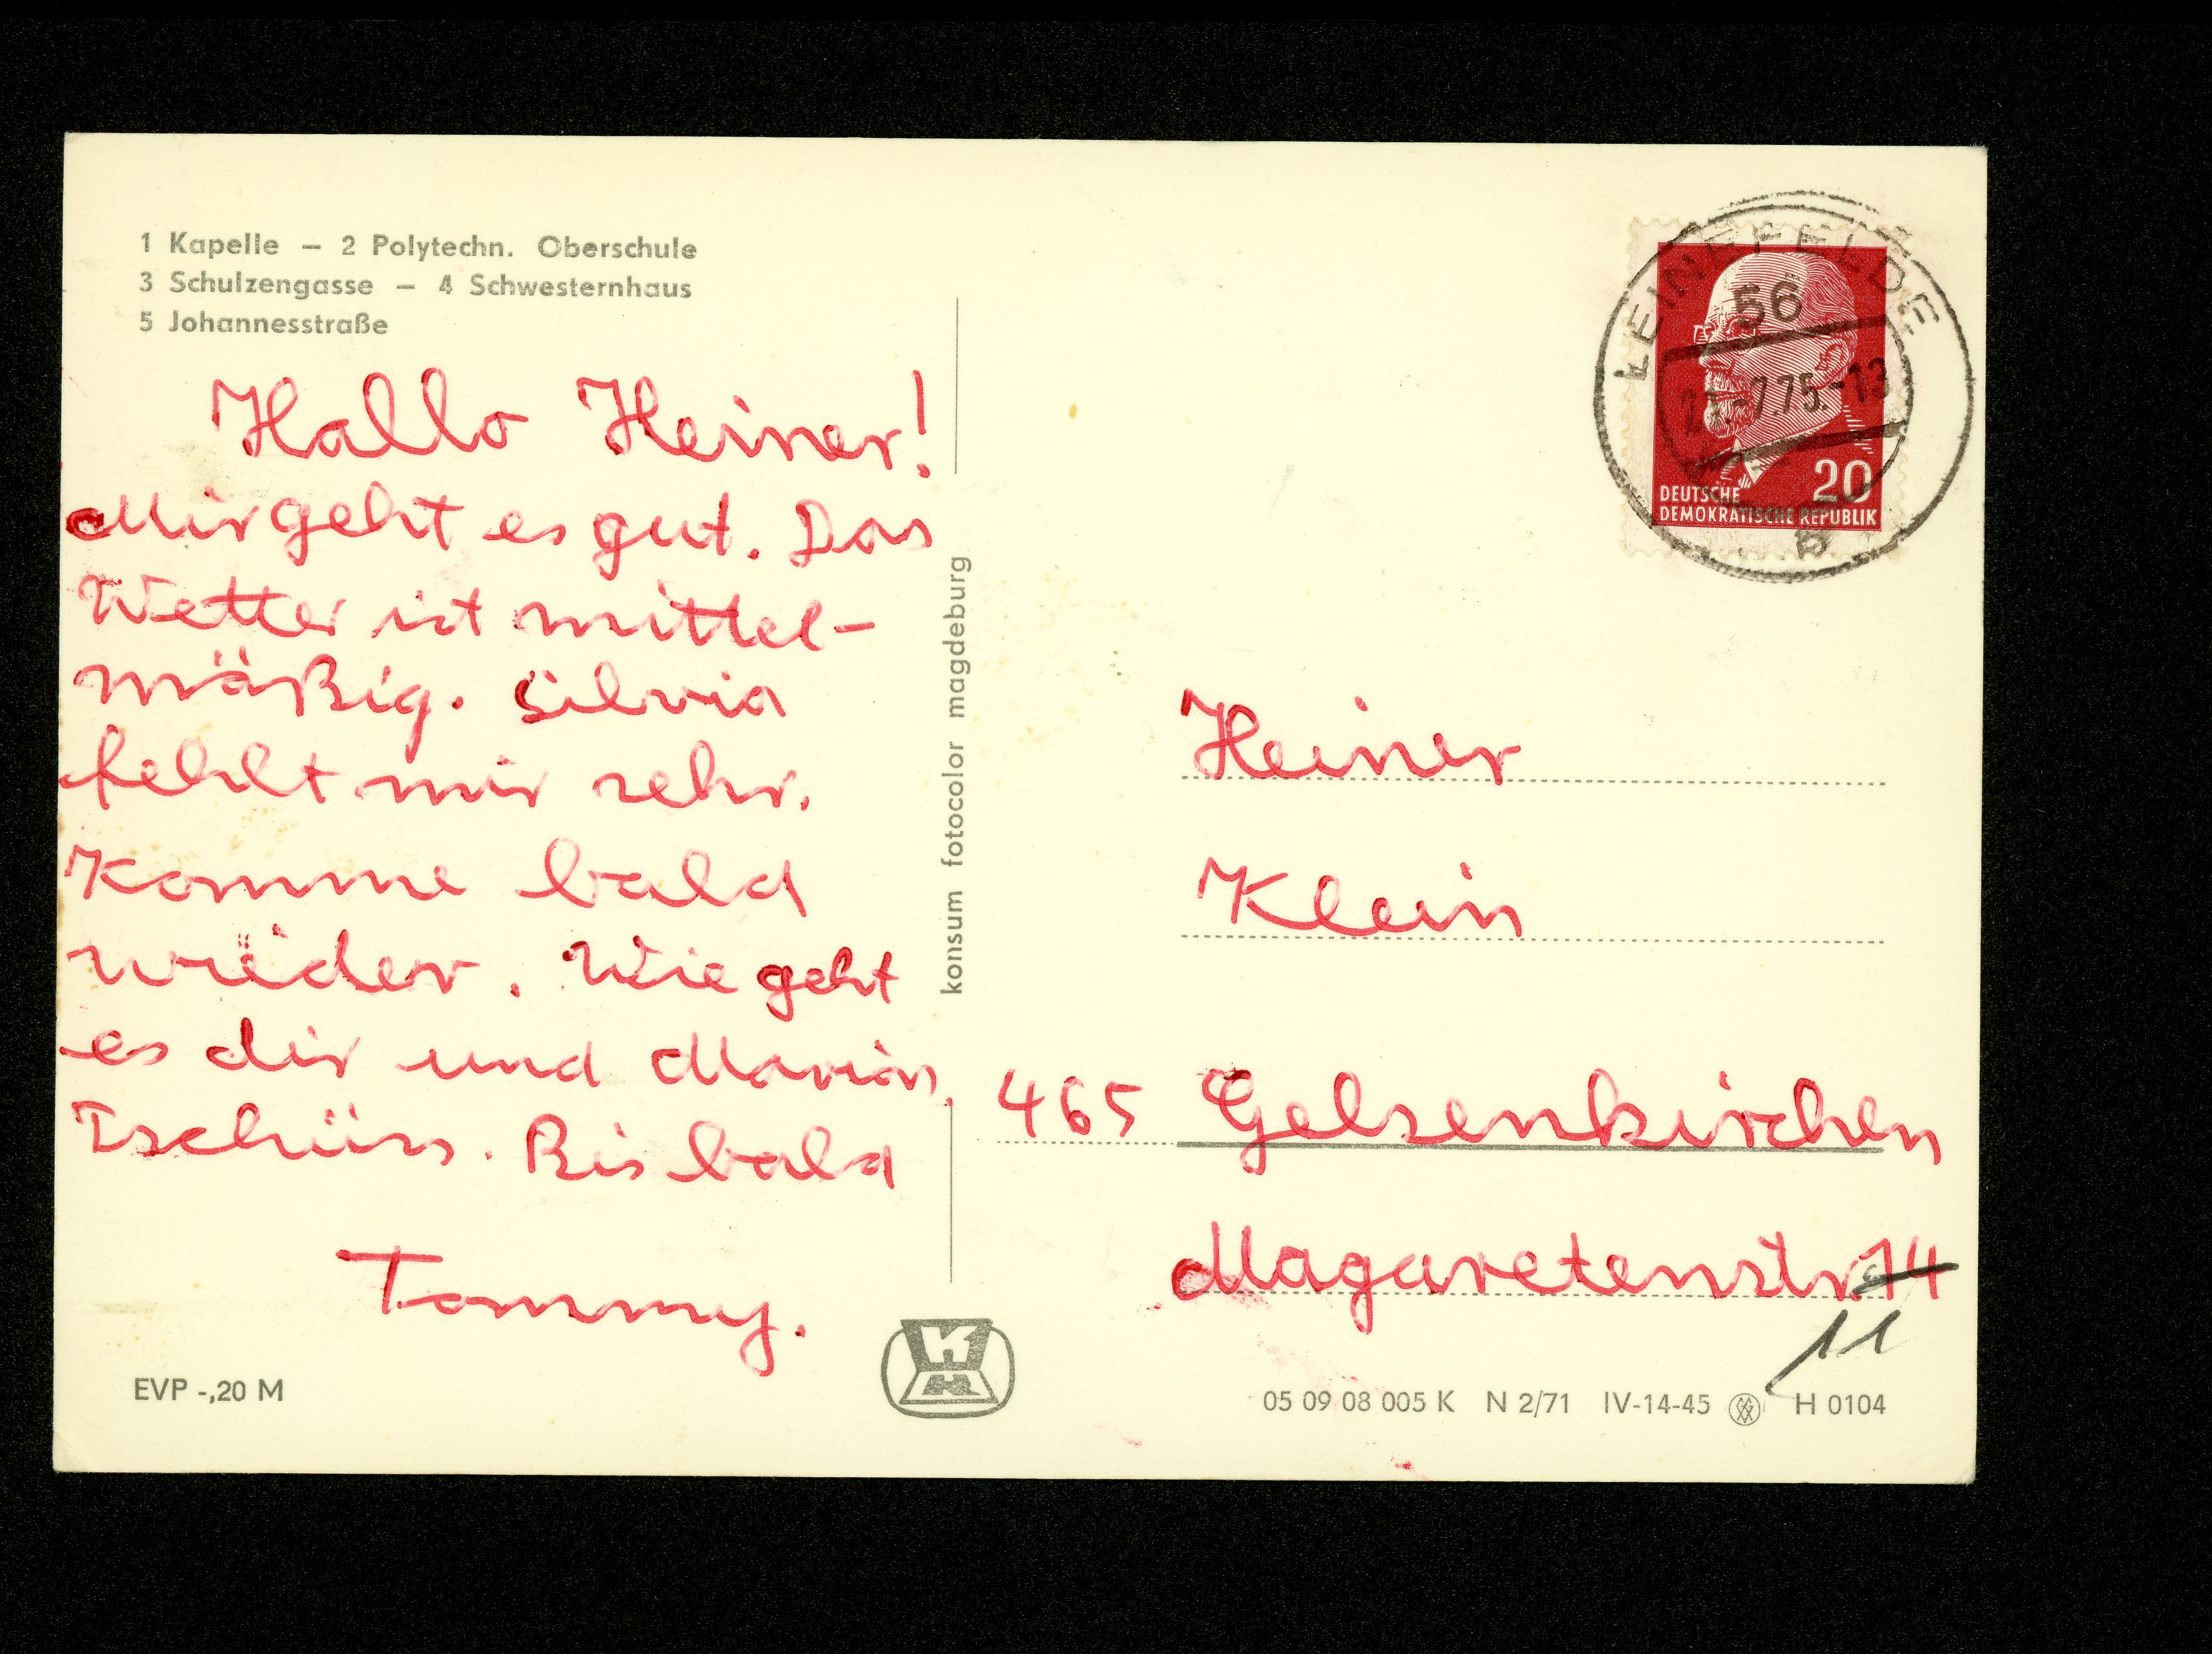 1 Kapelle – 2 Polytechn. Oberschule
3 Schulzengasse – 4 Schwesternhaus
5 Johannesstraße
Hallo Heiner!
Mir geht es gut. Das
Wetter ist mittel-
mäßig. Silvia
fehlt mir sehr.
Komme bald
wieder. Wie geht
es dir und Marion.
Tschüss. Bis bald
Tommy.
EVP -,20 M
konsum fotocolor magdeburg
LEINEFELDE
56
-7.75.-13
20
DEUTSCHE
DEMOKRATISCHE REPUBLIK
Heiner
Klein
465 Gelsenkirchen
Magaretenstr. 14
11
05 09 08 005 K N 2/71 IV-14-45 H 0104